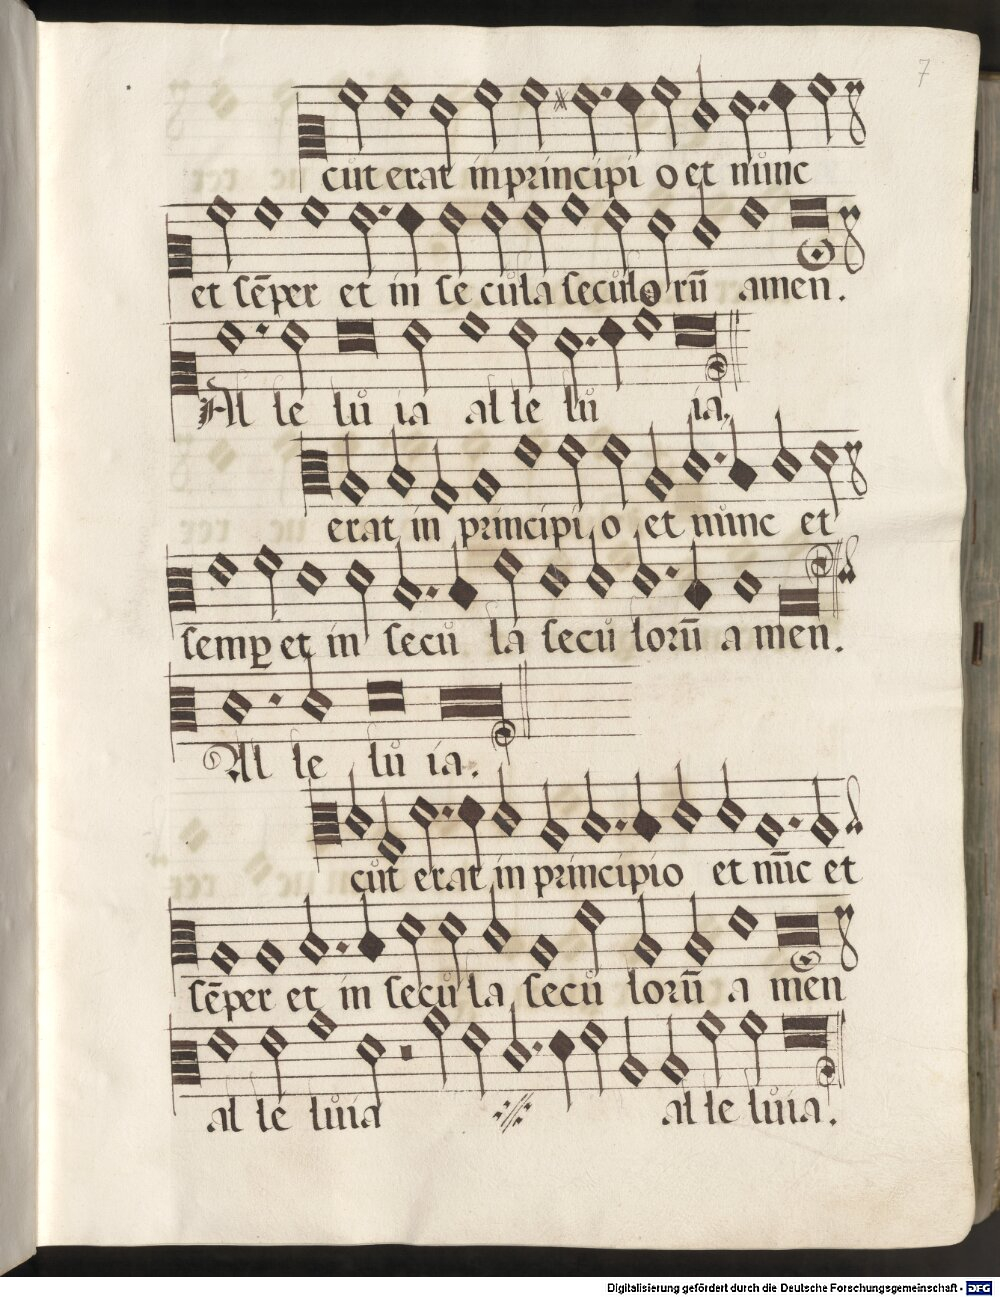 7
cut erat in principi o et nunc
et sēper et in se cula seculo rū amen.
Al le lu ia al le lu ia.
erat in principi o et nunc et
semꝑ et in secu la secu lorū a men.
Al le lu ia.
cut erat in principio et nūc et
sēper et in secu la secu lorū a mēn
al le luia al le luia.
Digitalisierung gefördert durch die Deutsche Forschungsgemeinschaft - DFG